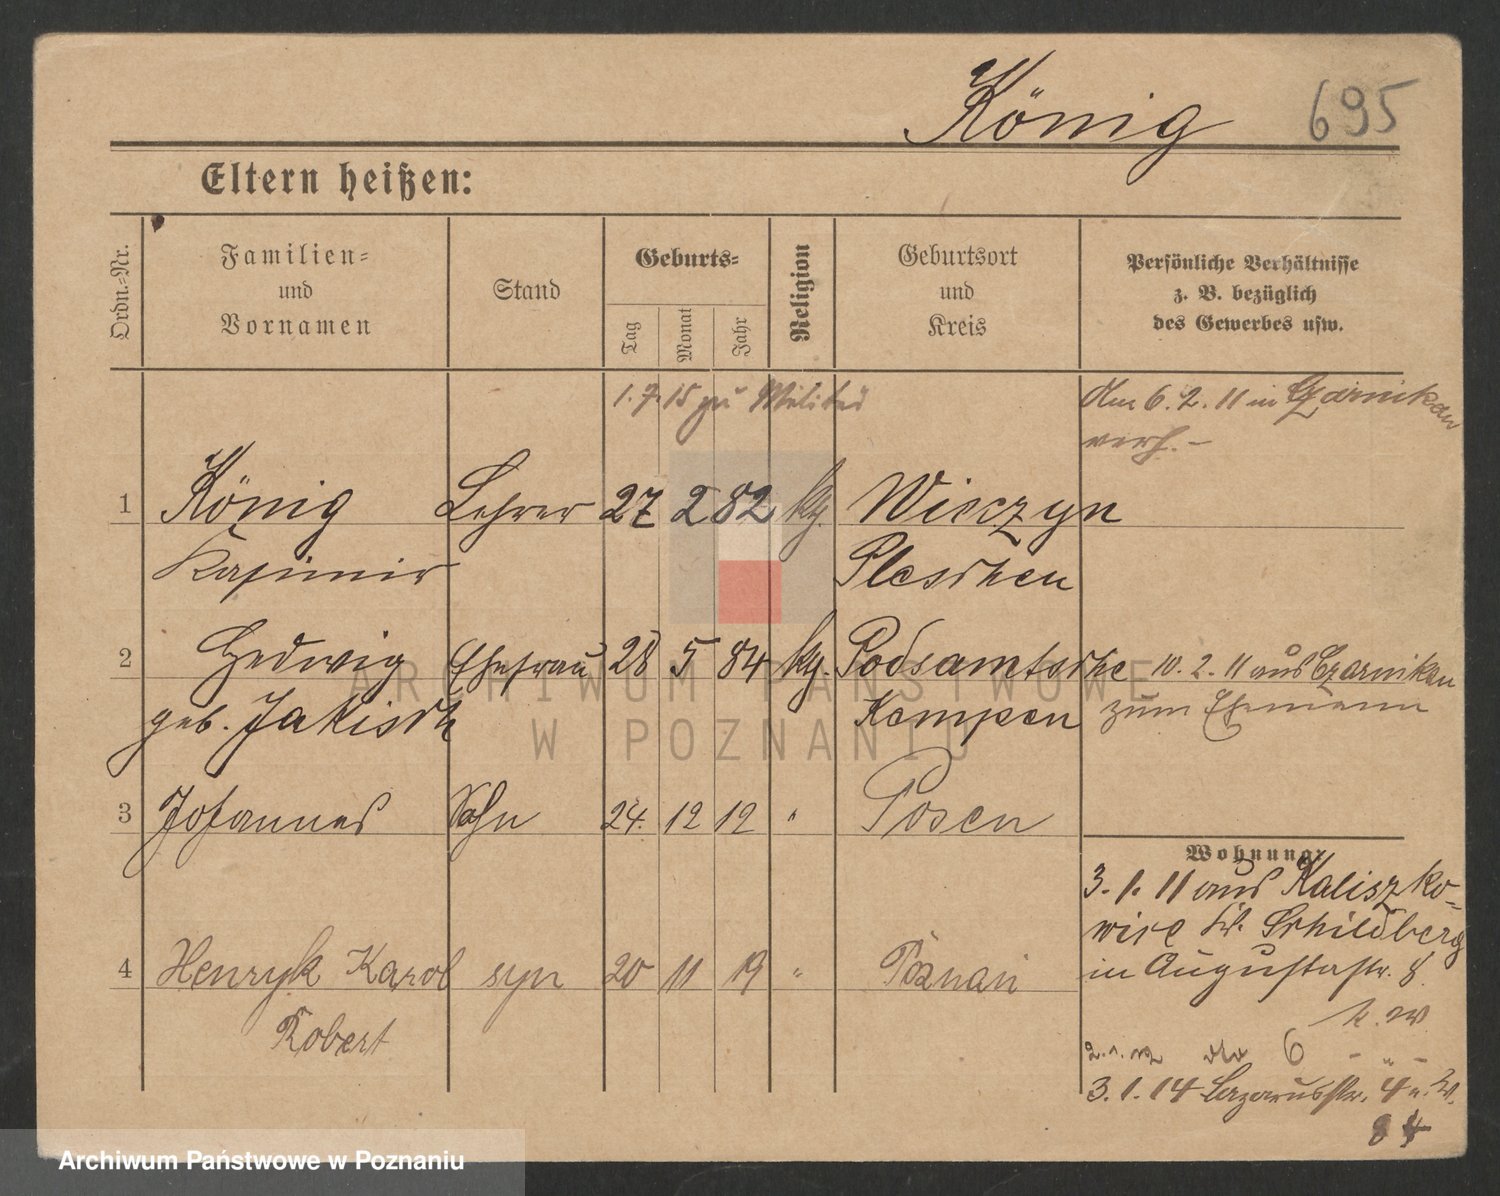 König 695
Eltern heißen:
Ordn.-Nr.
Familien-
und
Vornamen
Stand
Geburts-
Tag
Monat
Jahr
Religion
Geburtsort
und
Kreis
Persönliche Verhältnisse
z. B. bezüglich
des Gewerbes usw.
1.7.15 zu Militär
Am 6.2.11 in Czarnikau
verh. -
1 König Lehrer 27 2 82 kg. Wieczyn
Kasimir Pleschen
2 Hedwig Ehefrau 28 5 84 kg. Podsamtsche 10.2.11 aus Czarnikau
geb. Jakisch Kempen zum Ehemann
3 Johannes Sohn 24. 12 12 " Posen
Wohnung:
3.1.11 aus Kaliszko-
wice Kr. Schildberg
in Augustastr. 8
4 Henryk Karol syn 20 11 19 " Poznań
Robert
dto 6 - " -
3.1.14 Lazarusstr. 4
ARCHIWUM PAŃSTWOWE
W POZNANIU
Archiwum Państwowe w Poznaniu